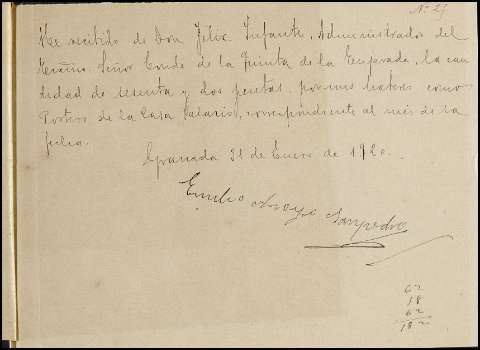 Nº 25
He recibido de Don Felix Infante, Administrador del
Excmo. Señor Conde de la Quinta de la Enjarada, la can
tidad de sesenta y dos pesetas, por mis haberes como
Portero de la Casa Palacio, correspondiente al mes de la
fecha.
Granada 31 de Enero de 1920.
Emilio Arroyo Sanpedro
62
18
62
182